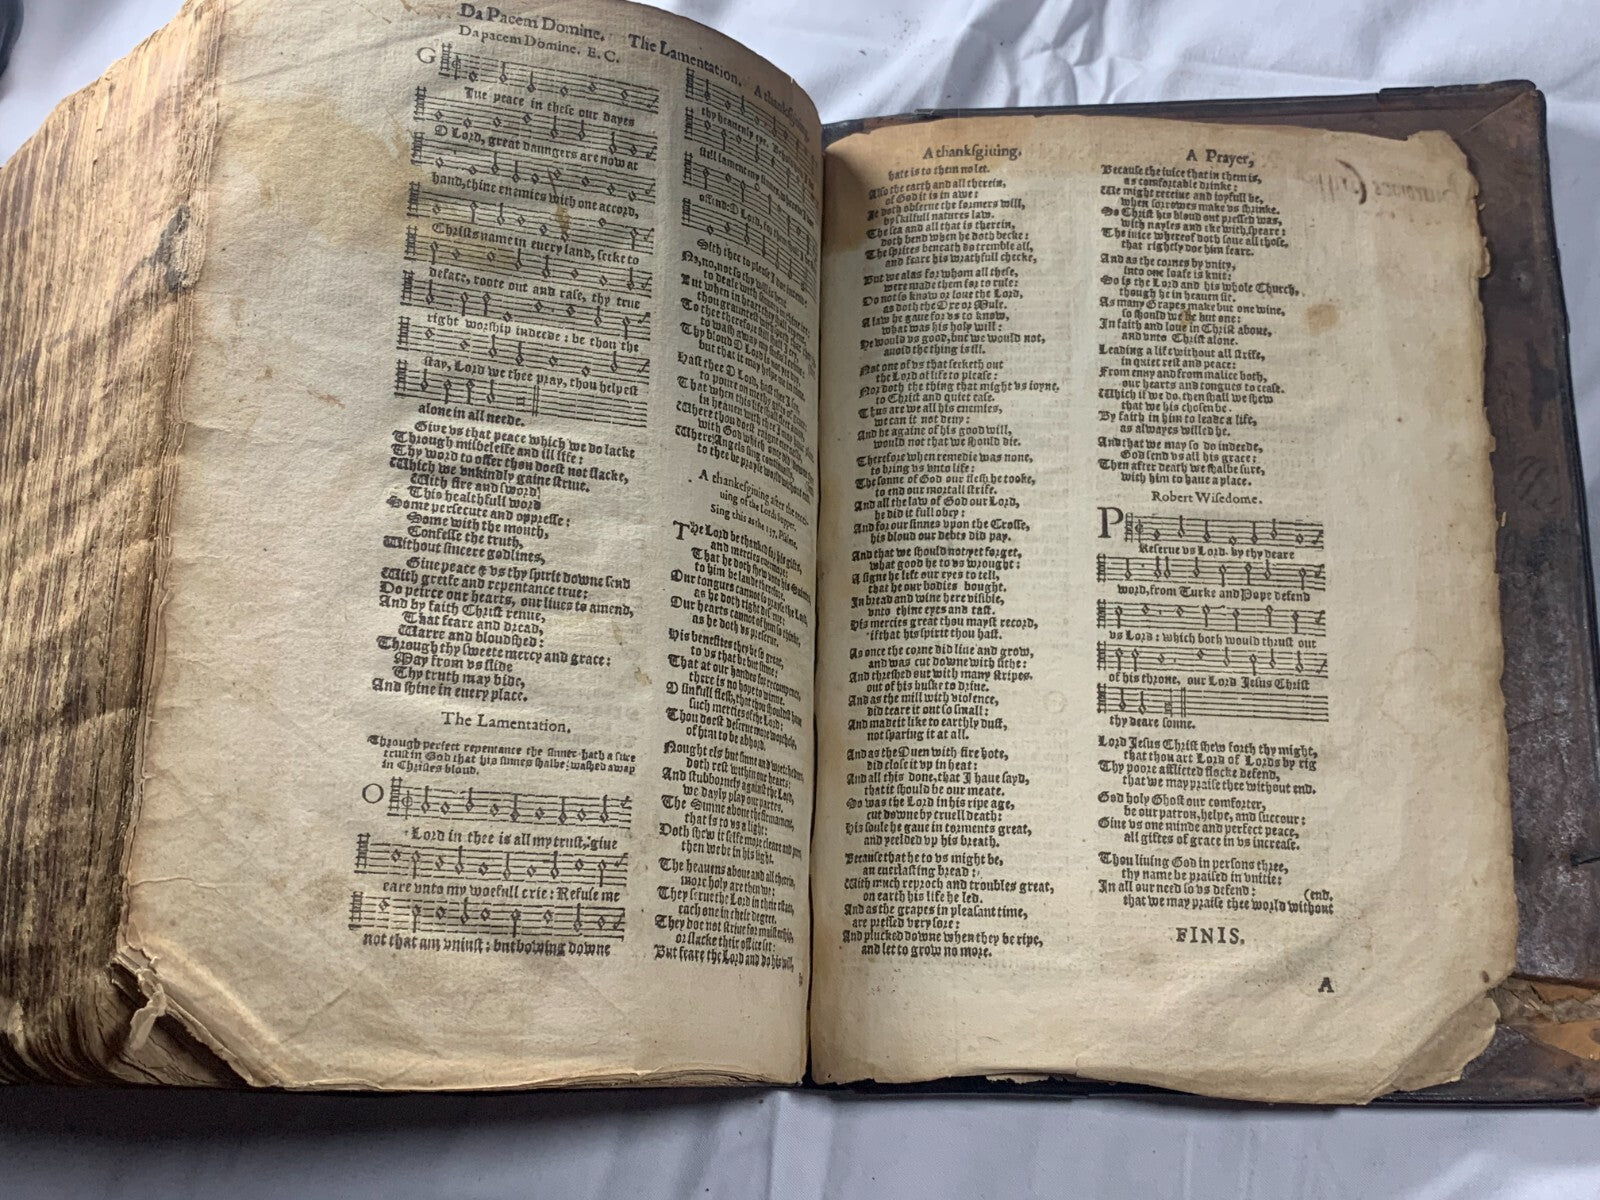 Da Pacem Domine. The Lamentation. A thanksgiuing
Da pacem Domine. E. C.
GIue peace in these our dayes
O Lord, great daungers are now at
hand, thine enemies with one accord,
Christs name in euery land, seeke to
deface, roote out and rase, thy true
right worship indeede: be thou the
stay, Lord we thee pray, thou helpest
alone in all neede.
Giue vs that peace which we do lacke
Through misbeleife and ill life:
Thy word to offer thou doest not slacke,
Which we vnkindly gaine striue.
With fire and sword,
This healthfull word
Some persecute and oppresse:
Some with the mouth,
Confesse the truth,
Without sincere godlines,
Giue peace & vs thy spirit downe send
With greife and repentance true:
Do peirce our hearts, our liues to amend,
And by faith Christ renue,
That feare and dread,
Warre and bloudshed:
Through thy sweete mercy and grace:
May from vs slide
Thy truth may bide,
And shine in euery place.
The Lamentation.
Through perfect repentance the sinner hath a sure
trust in God that his sinnes shalbe washed away
in Christes bloud.
O Lord in thee is all my trust, giue
eare vnto my woefull crie: Refuse me
not that am vniust: but bowing downe
thy heauenly eye. Behold
still lament my sinnes,
offend: O Lord, for them
Sith thee to please I doe intende.
No, no, not so thy will is bent,
to deale with sinners in thine ire:
But when in heart they shall repent,
thou grauntest with speede their
To thee therefore still shall I cry,
to wash away my sinfull crime:
Thy bloud O Lord is not yet dry,
but that it may helpe me in time.
Hast thee O Lord, hast thee I say,
to poure on me thy gifts of grace:
That when this life shall
in heauen with thee I may haue place,
Where thou doest raigne eternally,
with God which once did downe
Where Angels sing continually,
to thee be prayse world without end.
A thanksgiuing after the recei-
uing of the Lords Supper.
Sing this as the 137. Psalme.
The Lord be thanked for his gifts,
and mercies euermore:
That he doth shew vnto his Saints,
to him be laude therefore.
Our tongues cannot so praise the Lord,
as he doth right deserue:
Our hearts cannot of him so thinke,
as he doth vs preserue.
His benefites they be so great,
to vs that be but sinne:
That at our handes for recompence,
there is no hope to winne.
O sinfull flesh, that thou shouldst haue
such mercies of the Lord:
Thou doest deserue more worthely,
of him to be abhord.
Nought els but sinne and wretchednes,
doth rest within our hearts:
And stubbornely against the Lord,
we dayly play our partes.
The Sunne aboue the firmament,
that is to vs a light:
Doth shew it selfe more cleare and pure,
then we be in his sight.
The heauens aboue and all therein,
more holy are then we:
They serue the Lord in their estate,
each one in their degree.
They doe not striue for maistership,
or slacke their office set:
But feare the Lord and do his will,
A thanksgiuing.
hate is to them no let.
Also the earth and all therein,
of God it is in awe:
It doth obserue the formers will,
by skilfull natures law.
The sea and all that is therein,
doth bend when he doth becke:
The spirites beneath do tremble all,
and feare his wrathfull checke,
But we alas for whom all these,
were made them for to rule:
Do not so know or loue the Lord,
as doth the Oxe or Mule.
A law he gaue for vs to know,
what was his holy will:
He would vs good, but we would not,
auoid the thing is ill.
Not one of vs that seeketh out
the Lord of life to please:
Nor doth the thing that might vs ioyne,
to Christ and quiet ease.
Thus are we all his enemies,
we can it not deny:
And he againe of his good will,
would not that we should die.
Therefore when remedie was none,
to bring vs vnto life:
The sonne of God our flesh he tooke,
to end our mortall strife.
And all the law of God our Lord,
he did it full obey:
And for our sinnes vpon the Crosse,
his bloud our debts did pay.
And that we should not yet forget,
what good he to vs wrought:
A signe he left our eyes to tell,
that he our bodies bought.
In bread and wine here visible,
vnto thine eyes and tast.
His mercies great thou mayst record,
if that his spirit thou hast.
As once the corne did liue and grow,
and was cut downe with sithe:
And threshed out with many stripes,
out of his huske to driue.
And as the mill with violence,
did teare it out so small:
And made it like to earthly dust,
not sparing it at all.
And as the Ouen with fire hote,
did close it vp in heat:
And all this done, that I haue sayd,
that it should be our meate.
So was the Lord in his ripe age,
cut downe by cruell death:
His soule he gaue in torments great,
and yeelded vp his breath.
Because that he to vs might be,
an euerlasting bread:
With much reproch and troubles great,
on earth his life he led.
And as the grapes in pleasant time,
are pressed very sore:
And plucked downe when they be ripe,
and let to grow no more.
A Prayer,
Because the iuice that in them is,
as comfortable drinke:
We might receiue and ioyfull be,
when sorrowes make vs shrinke.
So Christ his bloud out pressed was,
with nayles and eke with speare:
The iuice whereof doth saue all those,
that rightly doe him feare.
And as the cornes by vnity,
into one loafe is knit:
So is the Lord and his whole Church,
though he in heauen sit.
As many Grapes make but one wine,
so should we be but one:
In faith and loue in Christ aboue,
and vnto Christ alone.
Leading a life without all strife,
in quiet rest and peace:
From enuy and from malice both,
our hearts and tongues to cease.
Which if we do, then shall we shew
that we his chosen be.
By faith in him to leade a life,
as alwayes willed he.
And that we may so do indeede,
God send vs all his grace:
Then after death we shalbe sure,
with him to haue a place.
Robert Wisedome.
PReserue vs Lord by thy deare
word, from Turke and Pope defend
vs Lord: which both would thrust out
of his throne, our Lord Jesus Christ
thy deare sonne.
Lord Jesus Christ shew forth thy might,
that thou art Lord of Lords by rig
Thy poore afflicted flocke defend,
that we may praise thee without end.
God holy Ghost our comforter,
be our patron, helpe, and succour:
Giue vs one minde and perfect peace,
all giftes of grace in vs increase.
Thou liuing God in persons three,
thy name be praised in vnitie:
In all our need so vs defend: (end.
that we may praise thee world without
FINIS.
A